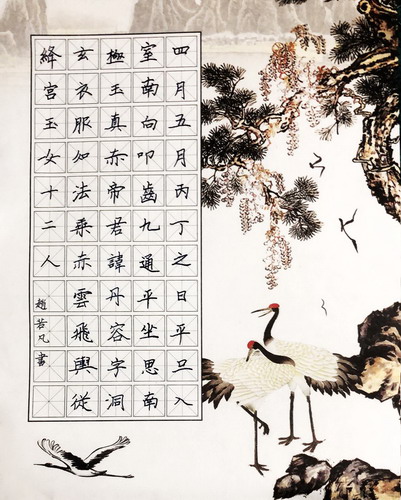 四月五月丙丁之日平旦入
室南向叩齒九通平坐思南
極玉真赤帝君諱丹容字洞
玄衣玉服仙法乘赤雲飛輿從
絳宮玉女十二人
趙若凡書